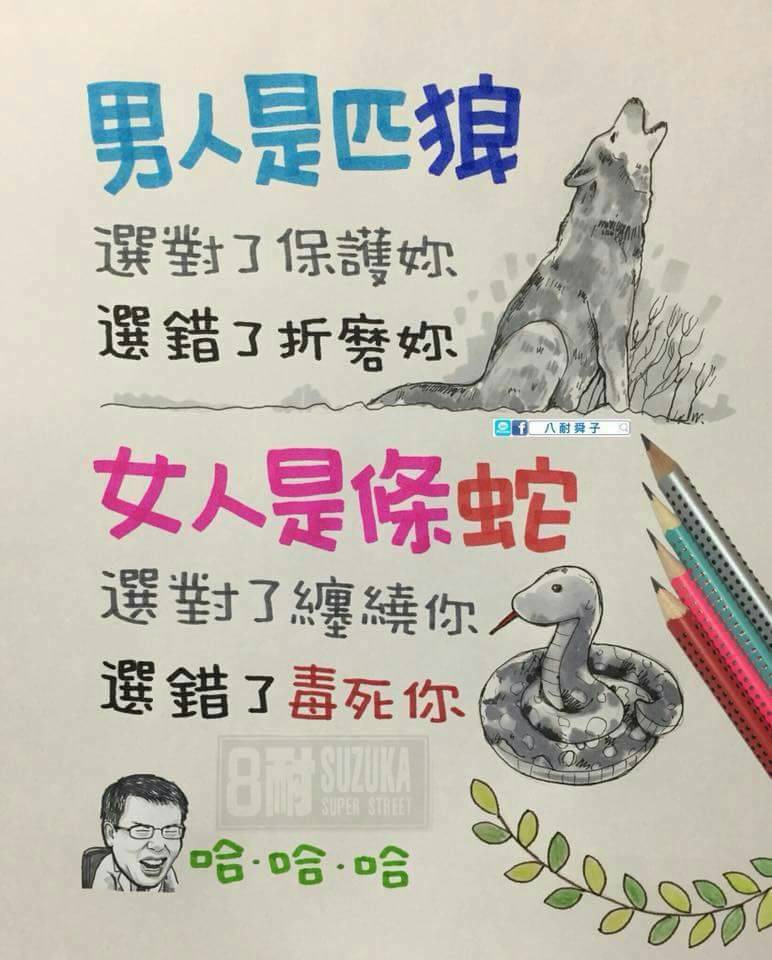 男人是匹狼
選對了保護妳
選錯了折磨妳
八耐舜子
女人是條蛇
選對了纏繞你
選錯了毒死你
8耐 SUZUKA
SUPER STREET
哈·哈·哈